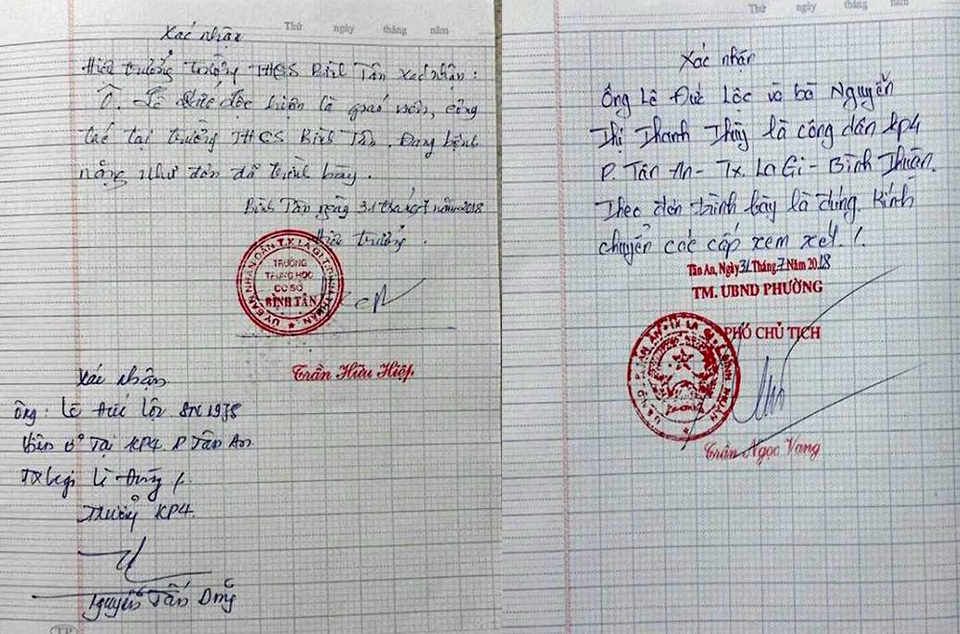 Thứ ngày tháng năm
Xác nhận
Hiệu trưởng trường THCS Bình Tân xác nhận:
Ô. Lê Đức Lộc hiện là giáo viên, công
tác tại trường THCS Bình Tân. Đang bệnh
nặng như đơn đã trình bày.
Bình Tân ngày 31 tháng 7 năm 2018
Hiệu trưởng.
ỦY BAN NHÂN DÂN T.X LA GI T.BÌNH THUẬN
TRƯỜNG
TRUNG HỌC
CƠ SỞ
BÌNH TÂN
Trần Hữu Hiệp
Xác nhận
ông: Lê Đức Lộc SN 1978
Hiện ở Tại KP4 P Tân An
TX Lagi Là Đúng
Trưởng KP4.
Nguyễn Tấn Dũng
Thứ ngày tháng năm
Xác nhận
Ông Lê Đức Lộc và bà Nguyễn
Thị Thanh Thùy là công dân KP4
P. Tân An - Tx. La Gi - Bình Thuận.
Theo đơn trình bày là đúng. Kính
chuyển các cấp xem xét./.
Tân An, Ngày 31 Tháng 7 Năm 2018
TM. UBND PHƯỜNG
PHÓ CHỦ TỊCH
U.B.N.D P. TÂN AN TX LA GI T. BÌNH THUẬN
Trần Ngọc Vang